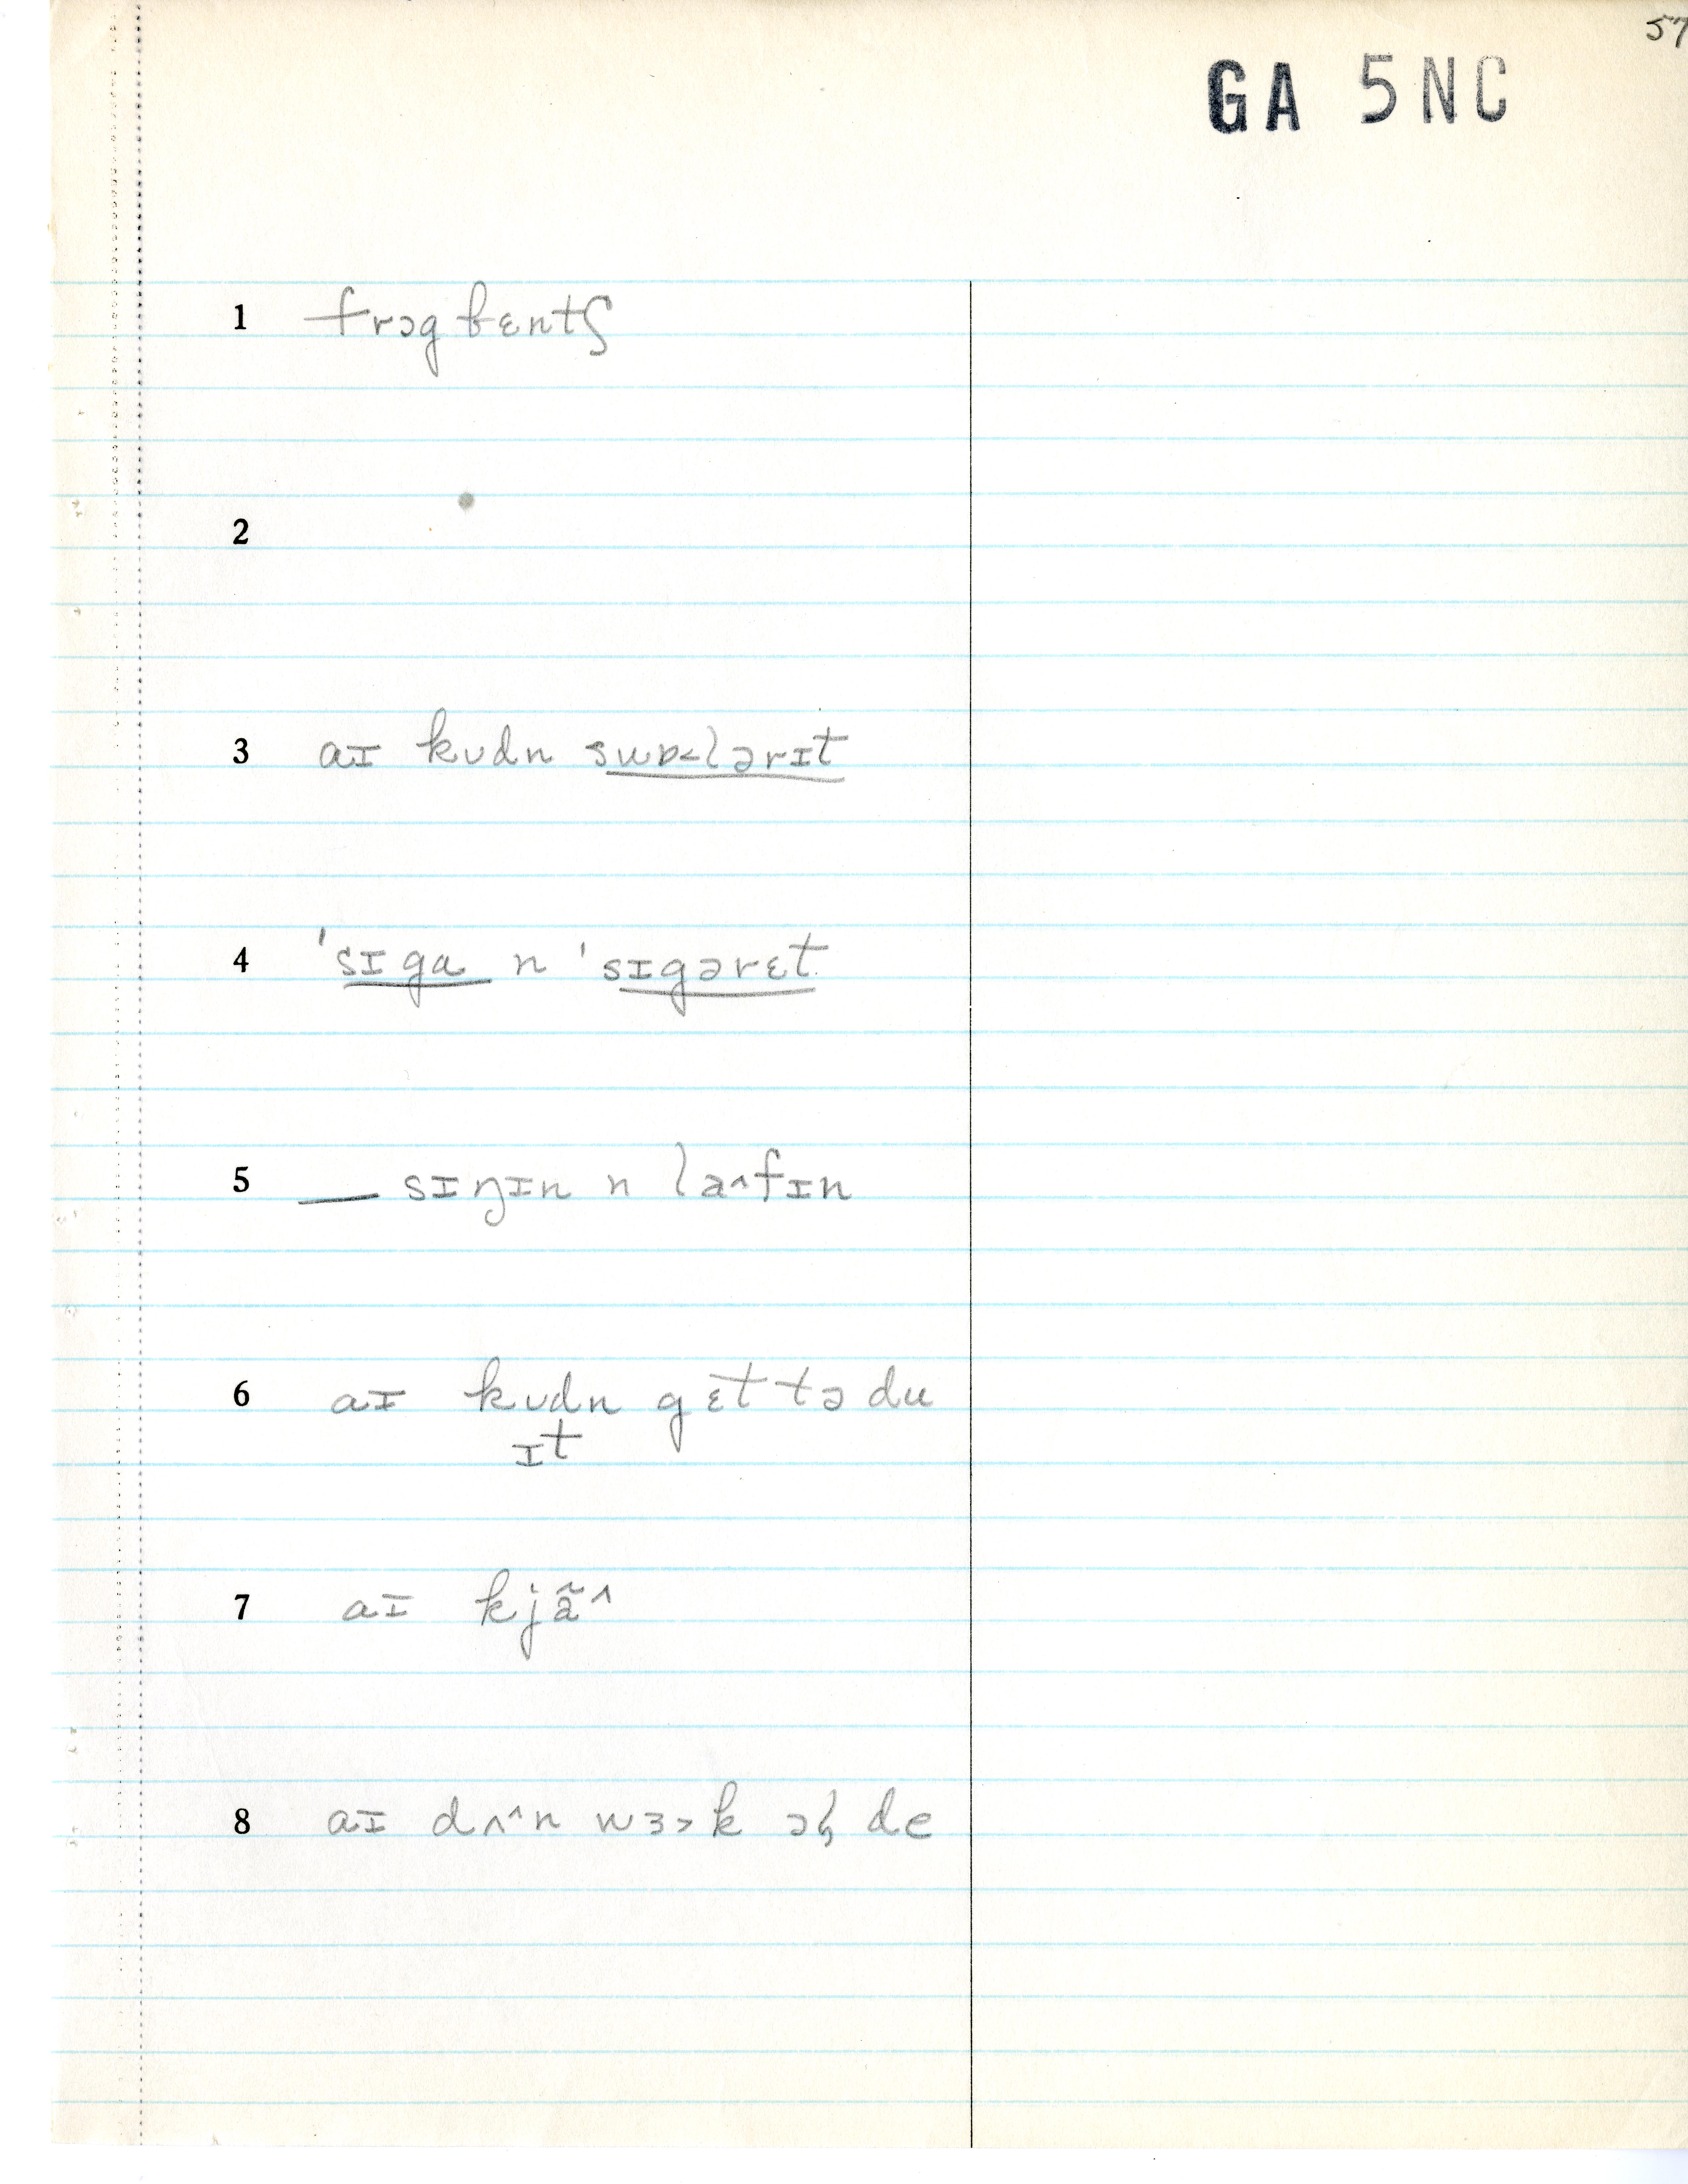 57
GA 5NC
1 frɔgbɛntʃ
2
3 aɪ kʊdn swɒ<lərɪt
4 ˈsɪga n ˈsɪgərɛt
5 — sɪŋɪn n la^fɪn
6 aɪ kʊdn gɛt tə du
ɪt
7 aɪ kjã^
8 aɪ dʌ^n wɜ>k de